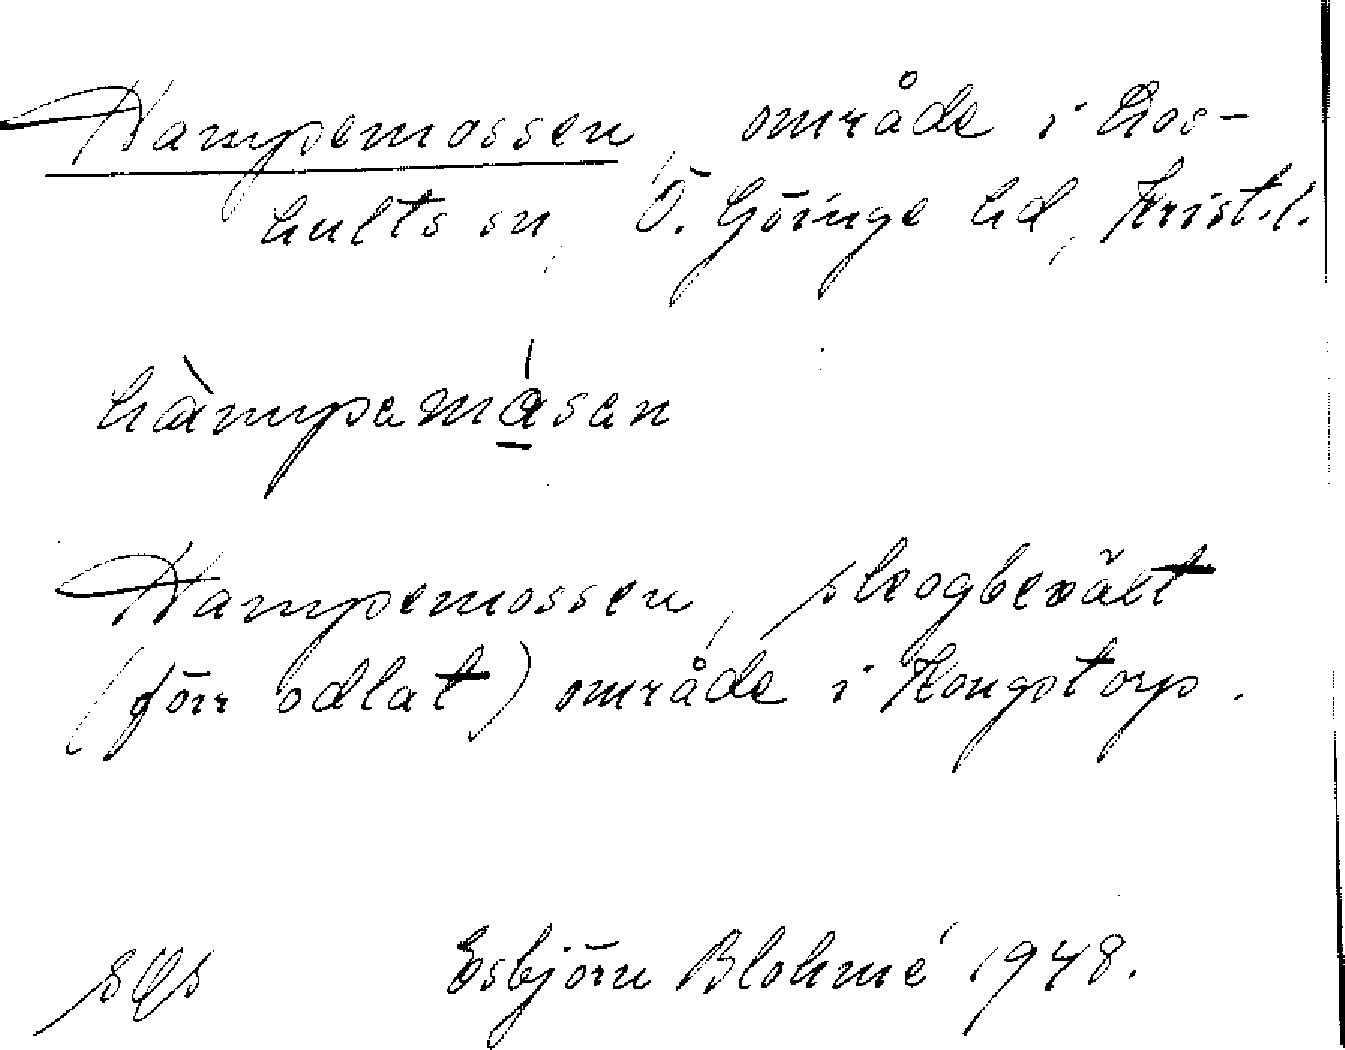 Hampemossen, område i Los-
hults sn, Ö. Göinge hd, Krist.l.
hàmpemåsen
Hampemossen, skogbeväxt
(förr odlat) område i Kongstorp.
Esbjörn Blohmé 1948.